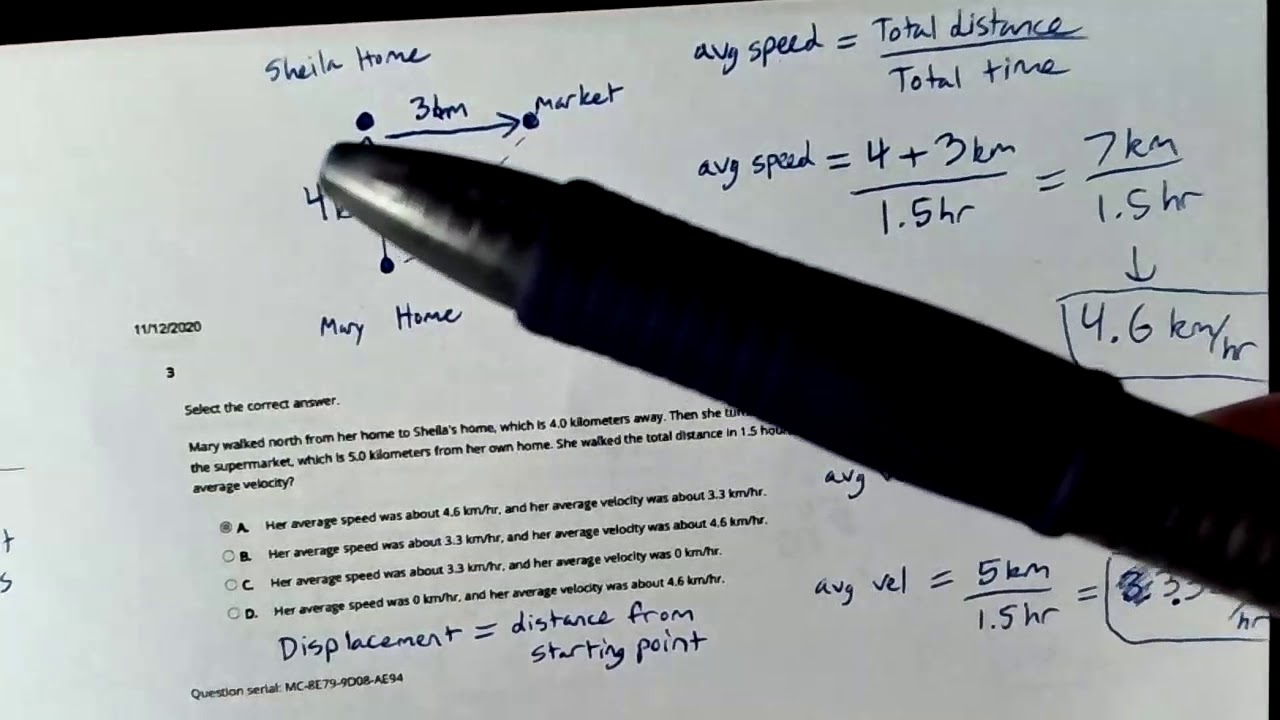 Sheila Home
3km
Market
4k
Mary Home
avg speed = Total distance
Total time
avg speed = 4 + 3 km = 7 km
1.5 hr 1.5 hr
↓
4.6 km/hr
11/12/2020
3
Select the correct answer.
Mary walked north from her home to Sheila's home, which is 4.0 kilometers away. Then she
the supermarket, which is 5.0 kilometers from her own home. She walked the total distance in 1.5
average velocity?
A. Her average speed was about 4.6 km/hr, and her average velocity was about 3.3 km/hr.
B. Her average speed was about 3.3 km/hr, and her average velocity was about 4.6 km/hr.
C. Her average speed was about 3.3 km/hr, and her average velocity was 0 km/hr.
D. Her average speed was 0 km/hr, and her average velocity was about 4.6 km/hr.
avg
avg vel = 5 km = 3.3
1.5 hr /hr
Displacement = distance from
starting point
Question serial: MC-8E79-9D08-AE94
t
s